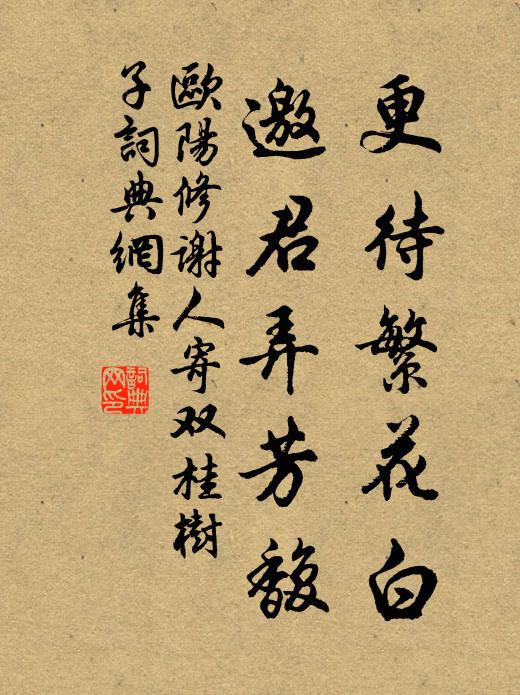 更待繁花白
邀君弄芳馥
歐陽修謝人寄双桂樹
子詞典網集
詞典
网印